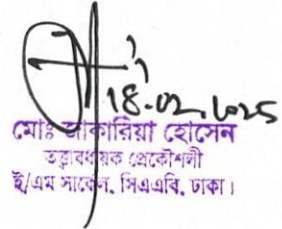 18.02.2025
মোঃ জাকারিয়া হোসেন
তত্ত্বাবধায়ক প্রকৌশলী
ই/এম সার্কেল, সিএএবি, ঢাকা।